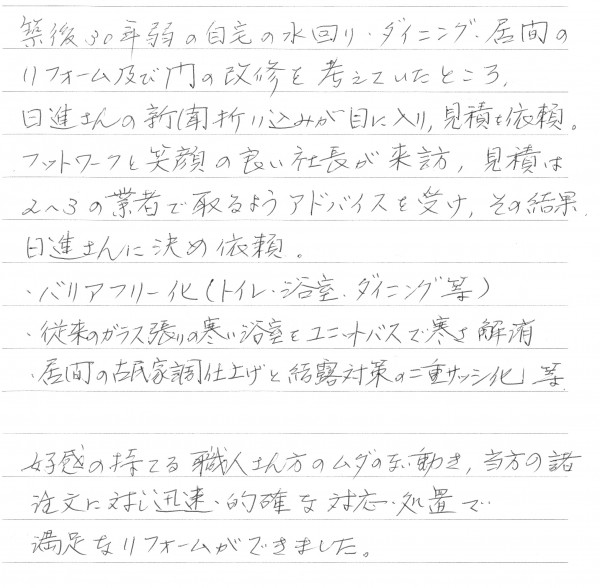 築後30年弱の自宅の水回り・ダイニング・居間の
リフォーム及び門の改修を考えていたところ、
日進さんの新聞折り込みが目に入り、見積を依頼。
フットワークと笑顔の良い社長が来訪、見積は
2〜3の業者で取るようアドバイスを受け、その結果、
日進さんに決め依頼。
・バリアフリー化(トイレ・浴室、ダイニング等)
・従来のガラス張りの寒い浴室をユニットバスで寒さ解消
・居間の古民家調仕上げと結露対策の二重サッシ化」等
好感の持てる職人さん方のムダのない動き、当方の諸
注文に対し迅速・的確な対応・処置で
満足なリフォームができました。